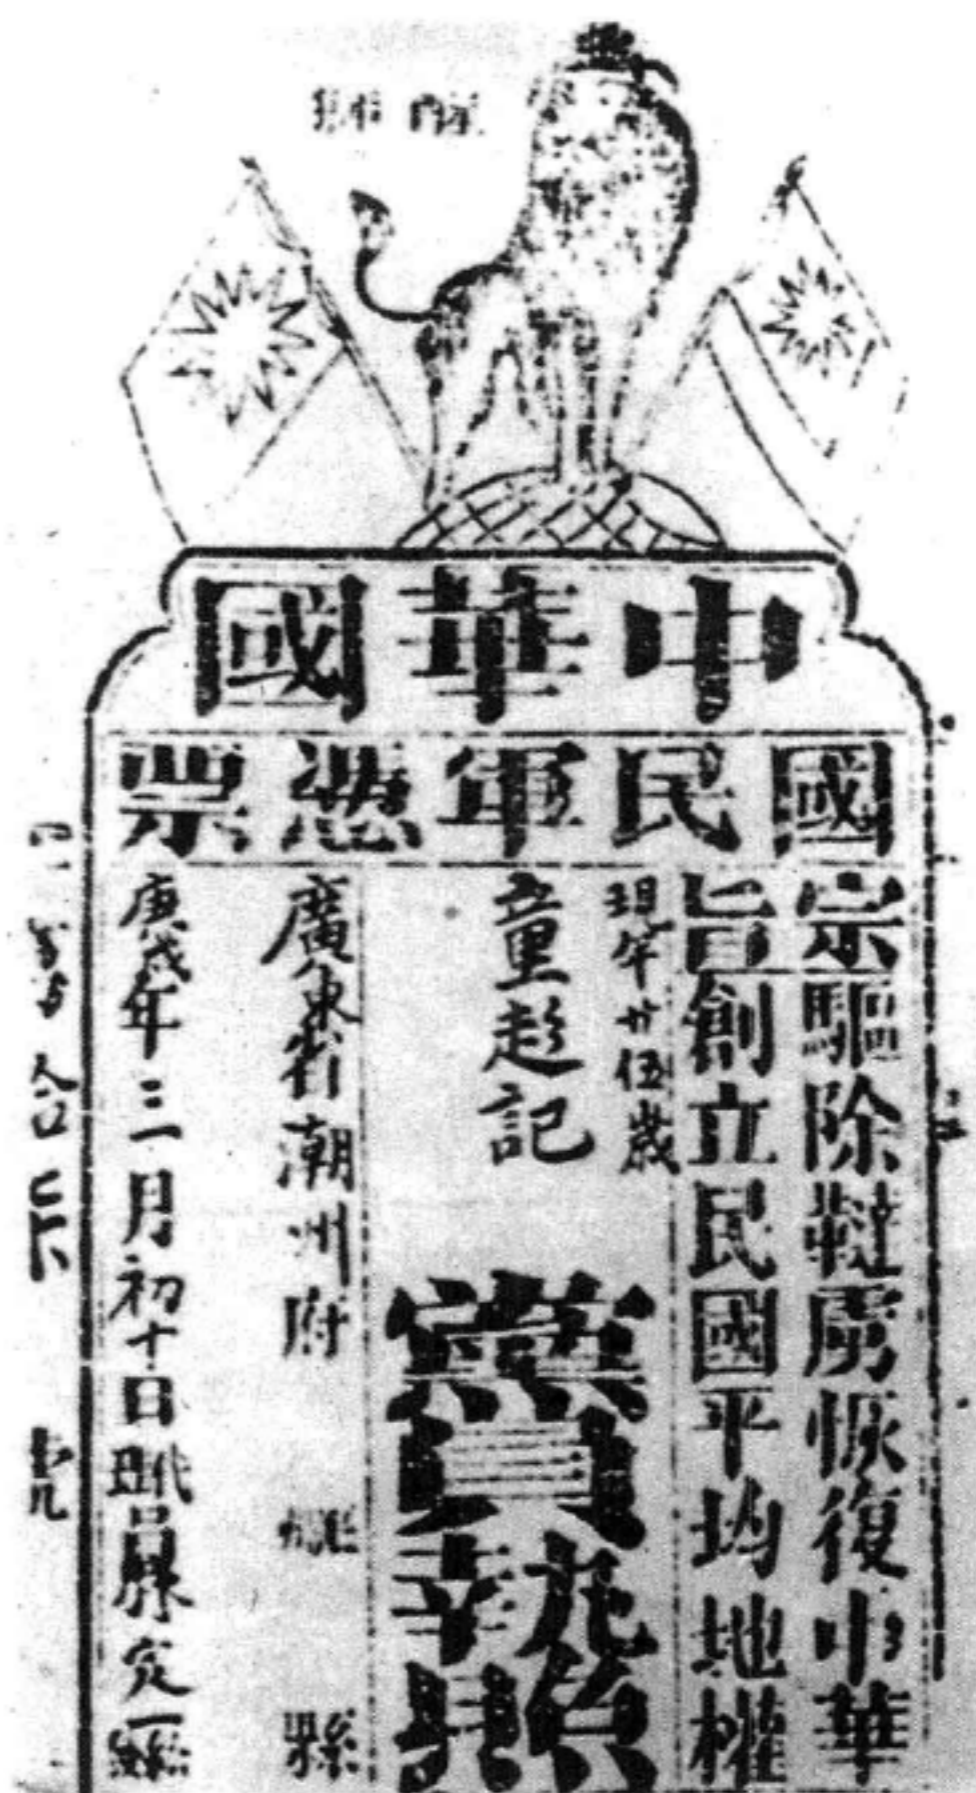 醒獅
中華國
國民軍憑票
宗驅除韃虜恢復中華
旨創立民國平均地權
現年廿伍歲
童趁記
黨員執照
廣東省潮州府
縣
庚戌年三月初十日職員縣